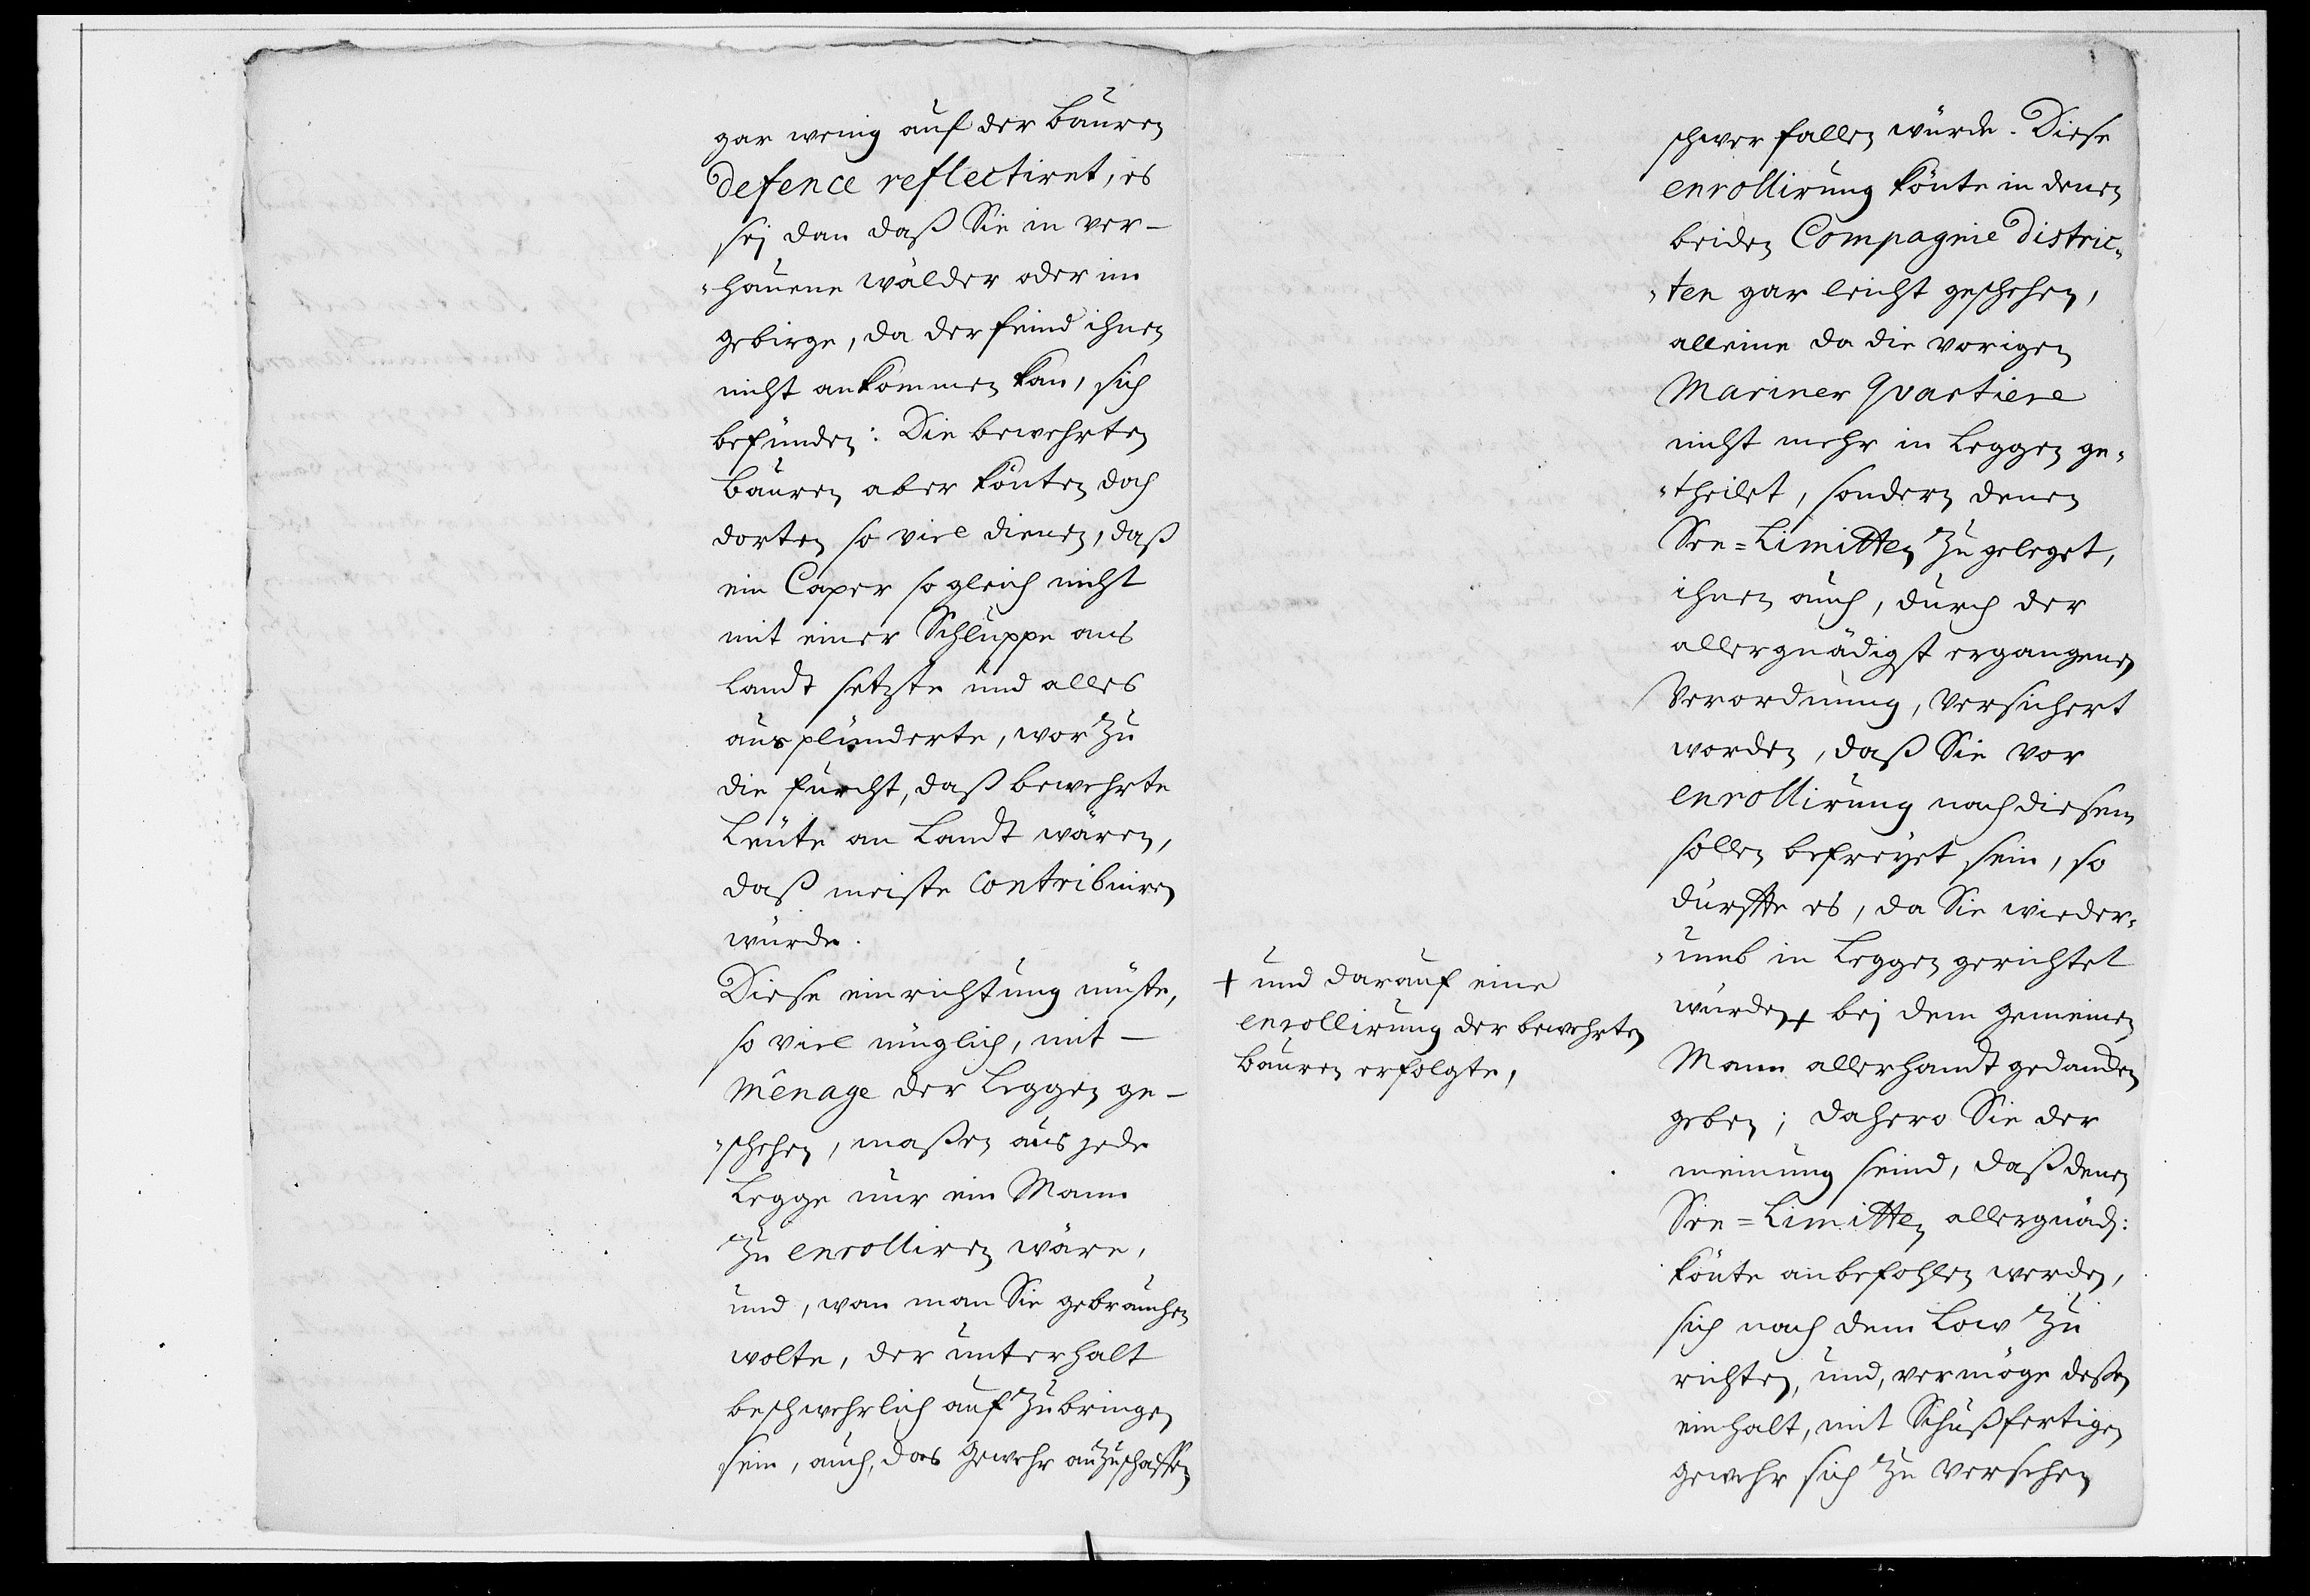 gar wenig auf der Bauren
defence reflectiret, es
sej dan daß Sie in ver-
"hauene wälder oder im
gebirge, da der feind ihnen
nicht ankommen kan, sich
befünden: Die bewehrten
Bauren aber könten doch
dorten so viel dienen, daß
ein Caper so gleich nicht
mit einer Schluppe ans
Landt setzte und alles
ausplünderte, wor zu
die furcht, daß bewehrte
Leute an Landt wären,
daß meiste contribuiren
würde.
Diese einrichtung müste,
so viel müglich, mit-
mênage der Leggen ge-
"schehen, maßen aus jede
Legge nur ein Mann
zu enrolliren wäre,
und, wan man Sie gebrauchen
wolte, der unterhalt
beschwehrlich auf zu bringen
sein, auch, das gewehr anzuschaffen
schwer fallen würde. Diese
enrollirung könte in denen
beiden Compagnie distric"
"ten gar leicht geschehen,
alleine da die vorigen
Mariner Quartiere
nicht mehr in Leggen ge"
"theilet, sondern denen
See=Limitten zu geleget,
ihnen auch, durch der
allergnädigst ergangenen
Verordnung, versichert
worden, daß Sie vor
enrollirung nach diesem
sollen befreyet sein, so
dürffte es, da Sie wieder"
"umb in Leggen gerichtet
würden + bej dem gemeinen
Mann allerhandt gedancken
geben; dahero Sie der
meinung seind, daß denen
See=Limitten allergnäd:
könte anbefohlen werden,
sich nach dem Low zu
richten, und, vermöge deßen
einhalt, mit Schußfertigen
gewehr sich zu versehen
+ und darauf eine
enrollirung der bewehrten
Bauren erfolgte,